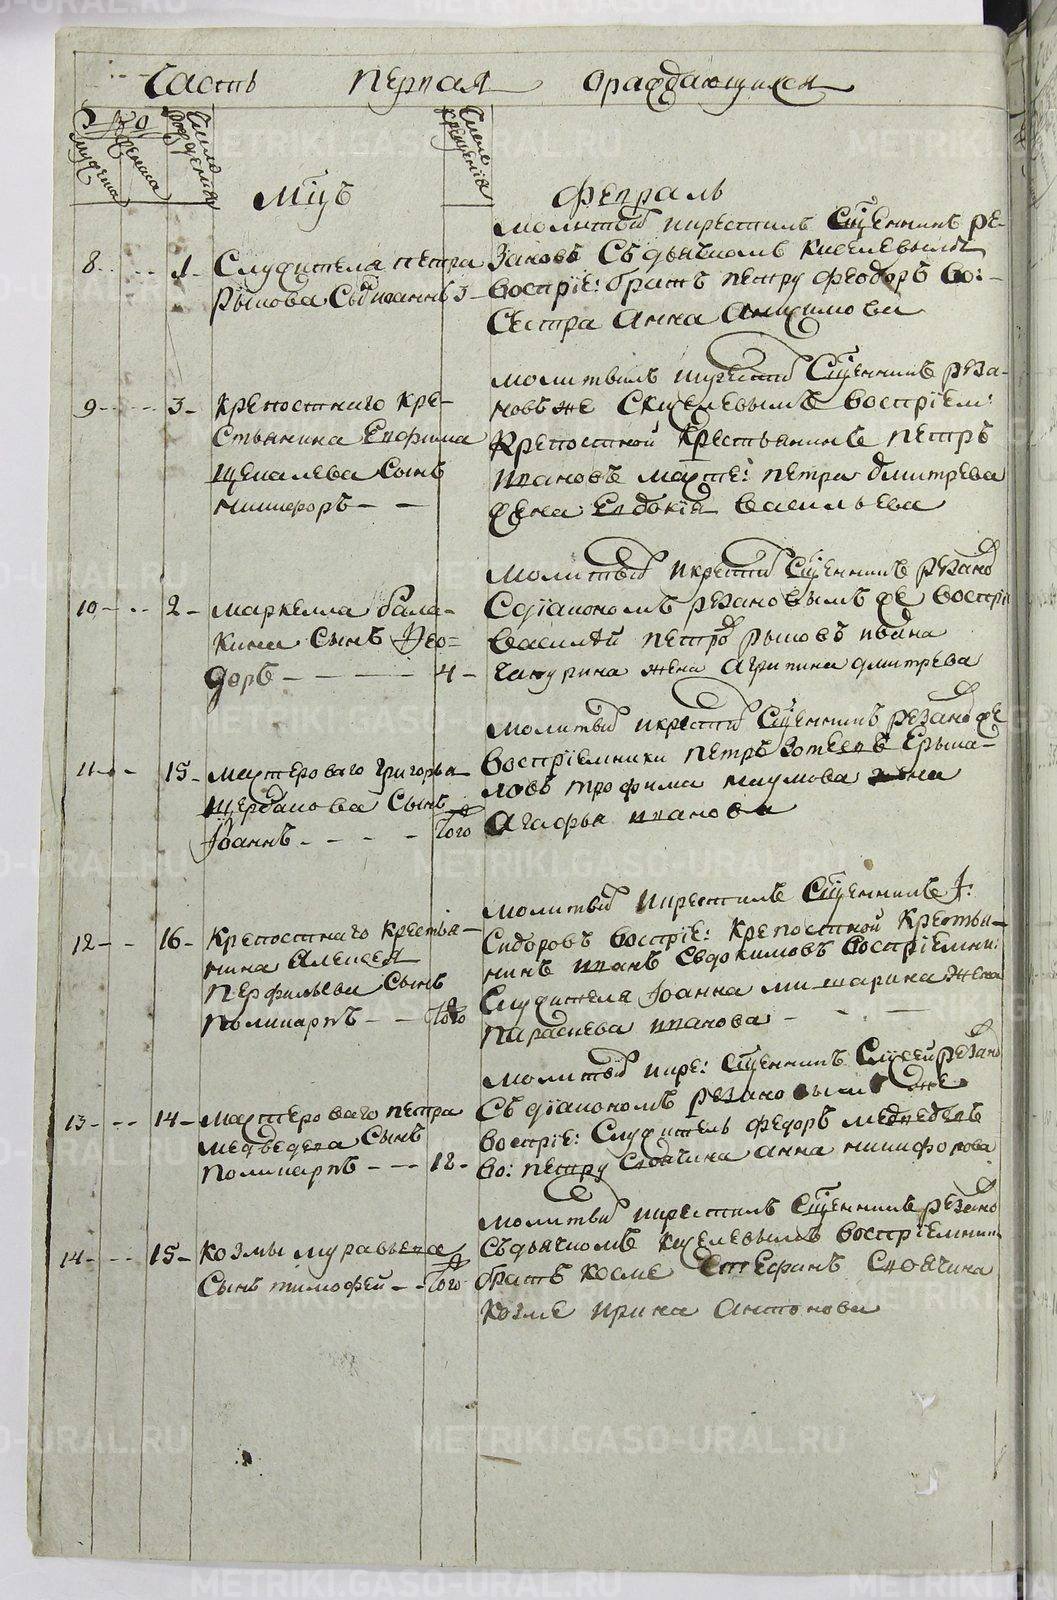 Часть первая ораждающихся
Число рождения
Число крещенїя
Мцъ Февраль
8 1 Служителя Петра
Рышова Сынъ Iоаннъ 3
молитвил и крестилъ Сщенникъ Ре-
зановъ Съ дьячкомъ Киселевымъ
воспрїе: братъ Петру Феодоръ во:
Сестра Анна Анисимова
9 3 Крепостнаго кре-
стьянина Евфима
Щекалева Сынъ
Никифоръ
молитвилъ и крестил Сщенникъ Реза-
новъ же С Киселевымъ воспрїем:
Крепостной Крестьянинъ Петръ
Ивановъ мастe: Петра Дмитрева
жена Евдокїя Васильева
10 2 Маркелла Бала-
кина Сынъ Фео-
доръ 4
молитвил и крестил Сщенникъ Резанов
С дїакономъ Резановымъ же воспрїе
Василей Петров Рышовъ Ивана
Чапурина жена Агрипина Дмитрева
11 15 Мастероваго Григорья
Щербакова Сынъ
Iоаннъ того
молитвил и крестил Сщенникъ Резанов же
воспрїемники Петръ Зотеевъ Ерыка-
ловъ Трофима Наумова жена
Агафья Иванова
12 16 Крепостнаго Крестья-
нина Алексея
Перфильева Сынъ
Поликарпъ того
молитвил и крестилъ Сщенникъ I:
Сидоровъ воспрїе: Крепостной Крестья-
нинъ Иванъ Евдокимовъ воспрїемни:
Служителя Iоанна Мишарина жена
Параскева Иванова
13 14 Мастероваго Петра
Медведева Сынъ
Поликарпъ 18
молитвил и кре: Сщенникъ Резанов
Съ дїакономъ Резановым же
воспрїе: Служитель Федоръ Медведевъ
во: Петру Своячина Анна Никифорова
14 15 Козмы Муравьева
Сынъ Тимофей того
молитвил и крестилъ Сщенникъ Резанов
Съ дьячкомъ Киселевымъ воспрїемник
братъ Косме Стефанъ Своячина
Козме Ирина Антонова
METRIKI.GASO-URAL.RU